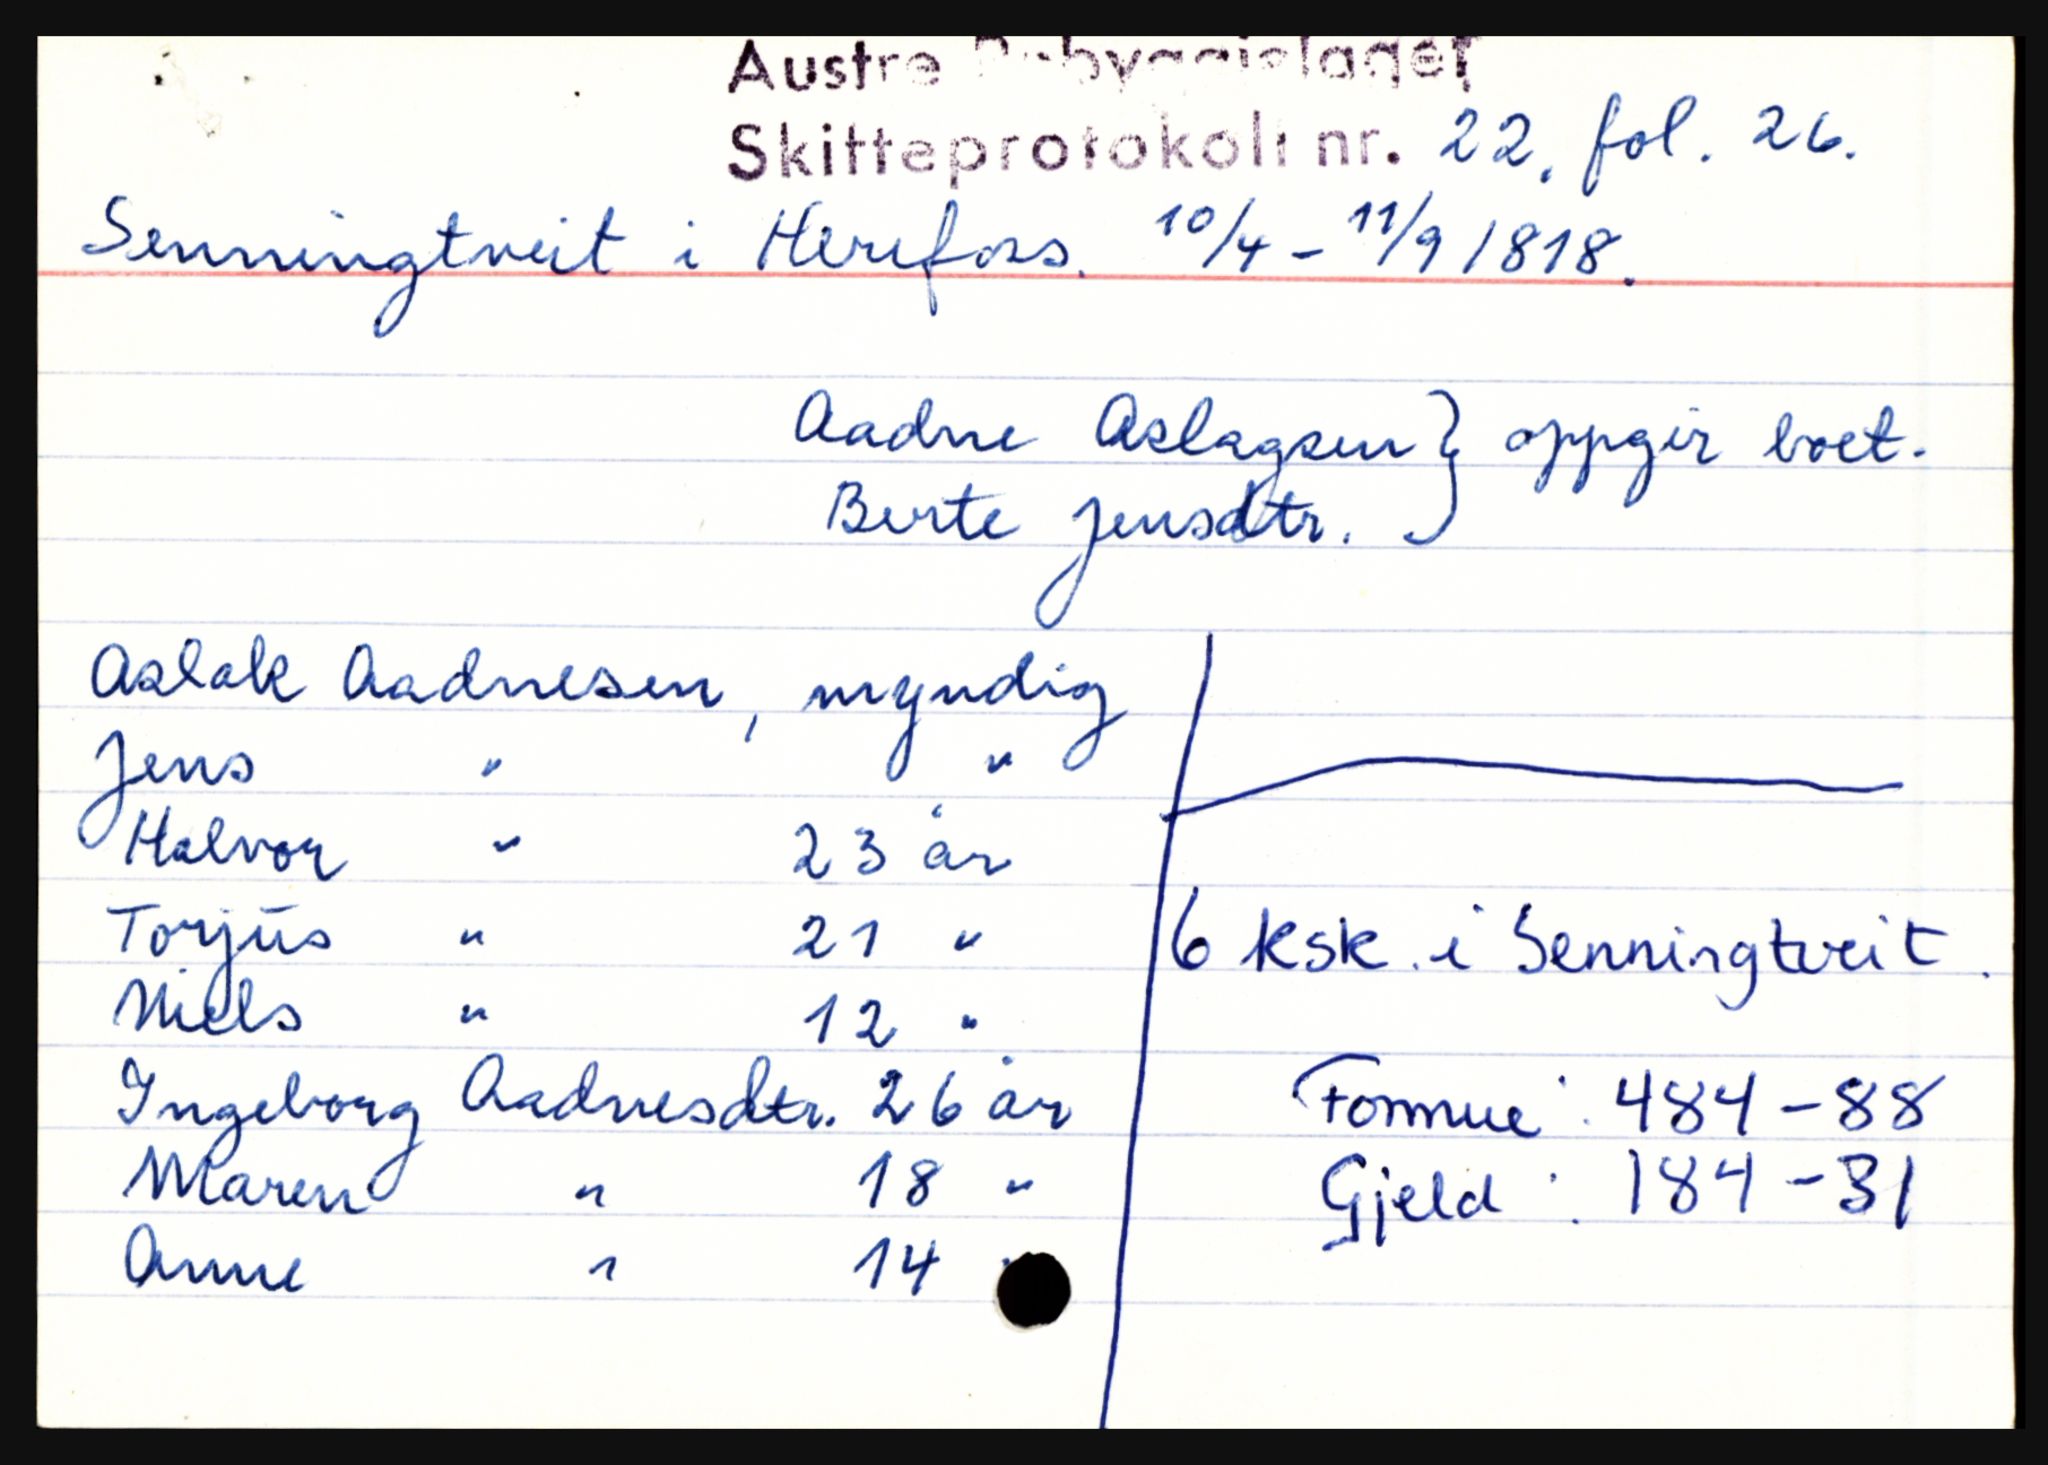 Austre
Skifteprotokoll nr. 22. fol. 26.
Senningtveit i Herefoss. 10/4 - 11/9 1818.
Aadne Aslagsen } oppgir boet.
Berte Jensdtr.
Aslak Aadnesen, myndig
Jens " "
Halvor " 23 år
Torjus " 21 "
6 ksk. i Senningtveit.
Niels " 12 "
Ingeborg Aadnesdtr. 26 år
Formue: 484-88
Maren " 18 "
Gjeld: 184-31
Anne " 14 "